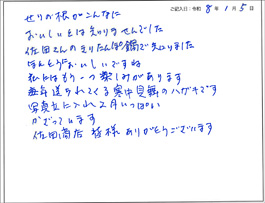 ご記入日：令和 8年 1月 5日
せりの根がこんなに
おいしいとは知りませんでした
佐田さんのきりたんぽ鍋で知りました
ほんとうにおいしいですね
私にはもう一つ楽しみがあります
毎年送られてくる寒中見舞のハガキです
写真立に入れ2月いっぱい
かざっています
佐田商店 皆様 ありがとうございます